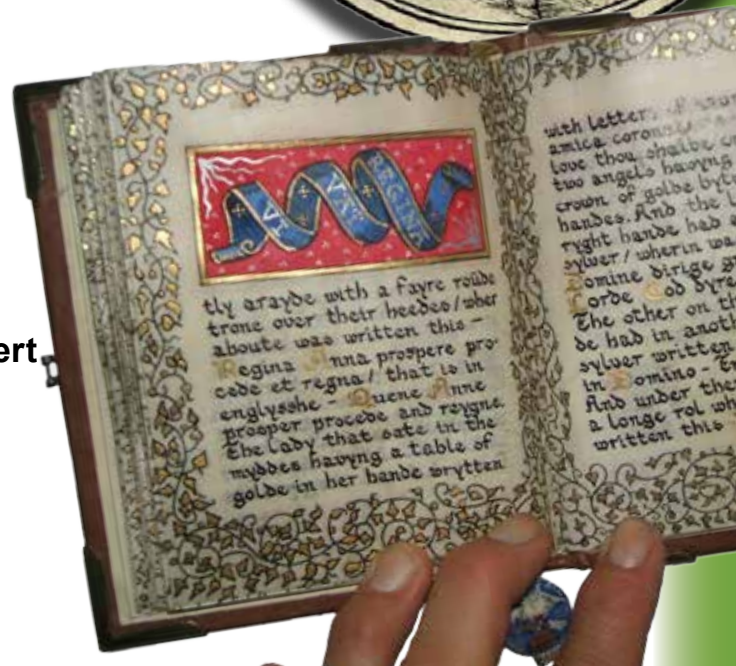 ert
VI
VAT
REGINA
tly arayde with a fayre roūde
trone over their heedes/wher
aboute was written this -
Regina Anna prospere pro
cede et regna/ that is in
englysshe - Quene Anne
prosper procede and reygne.
The Lady that sate in the
myddes havyng a table of
golde in her hande wrytten
with letters
amica coron
love thou shalbe
two angels havyng
crown of golde
handes. And the
ryght hande had
sylver/wherin wa
Domine dirige
Lorde God dyre
The other on th
de had in anoth
sylver written
in Domino -
And under the
a longe rol wh
written this